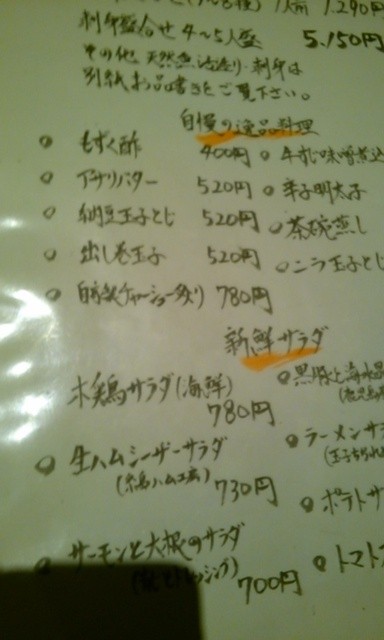 1人前 1.290円
刺身盛合せ 4〜5人盛 5.150円
その他、天然魚活造り・刺身は
別紙お品書きをご覧下さい。
自慢の逸品料理
もずく酢 400円
アサリバター 520円
納豆玉子とじ 520円
出し巻玉子 520円
自家製チャーシュー炙り 780円
牛すじ味噌煮込
辛子明太子
茶碗蒸し
ニラ玉子とじ
新鮮サラダ
サラダ(海鮮)
780円
生ハムシーザーサラダ
730円
サーモンと大根のサラダ
ドレッシング) 700円
ラーメンサ
ポテトサ
トマト